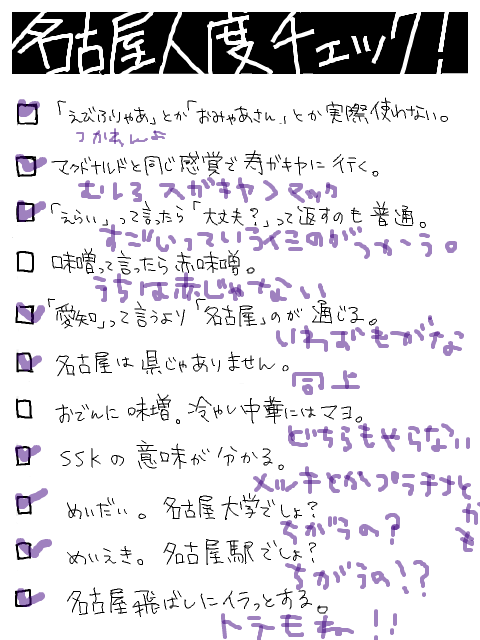 名古屋人度チェック!
「えびふりゃあ」とか「おみゃあさん」とか実際使わない。
つかわんよ
マクドナルドと同じ感覚で寿がキヤに行く。
むしろスガキヤ>マック
「えらい」って言ったら「大丈夫?」って返すのも普通。
すごいっていうイミのがつかう。
味噌って言ったら赤味噌。
うちは赤じゃない
「愛知」って言うより「名古屋」のが通じる。
いわずもがな
名古屋は県じゃありません。
同上
おでんに味噌。冷やし中華にはマヨ。
どちらもやらない
SSKの意味が分かる。
メルサとかプラチナとかも
めいだい。名古屋大学でしょ?
ちがうの?
めいえき。名古屋駅でしょ?
ちがうの!?
名古屋飛ばしにイラっとする。
トテモね!!